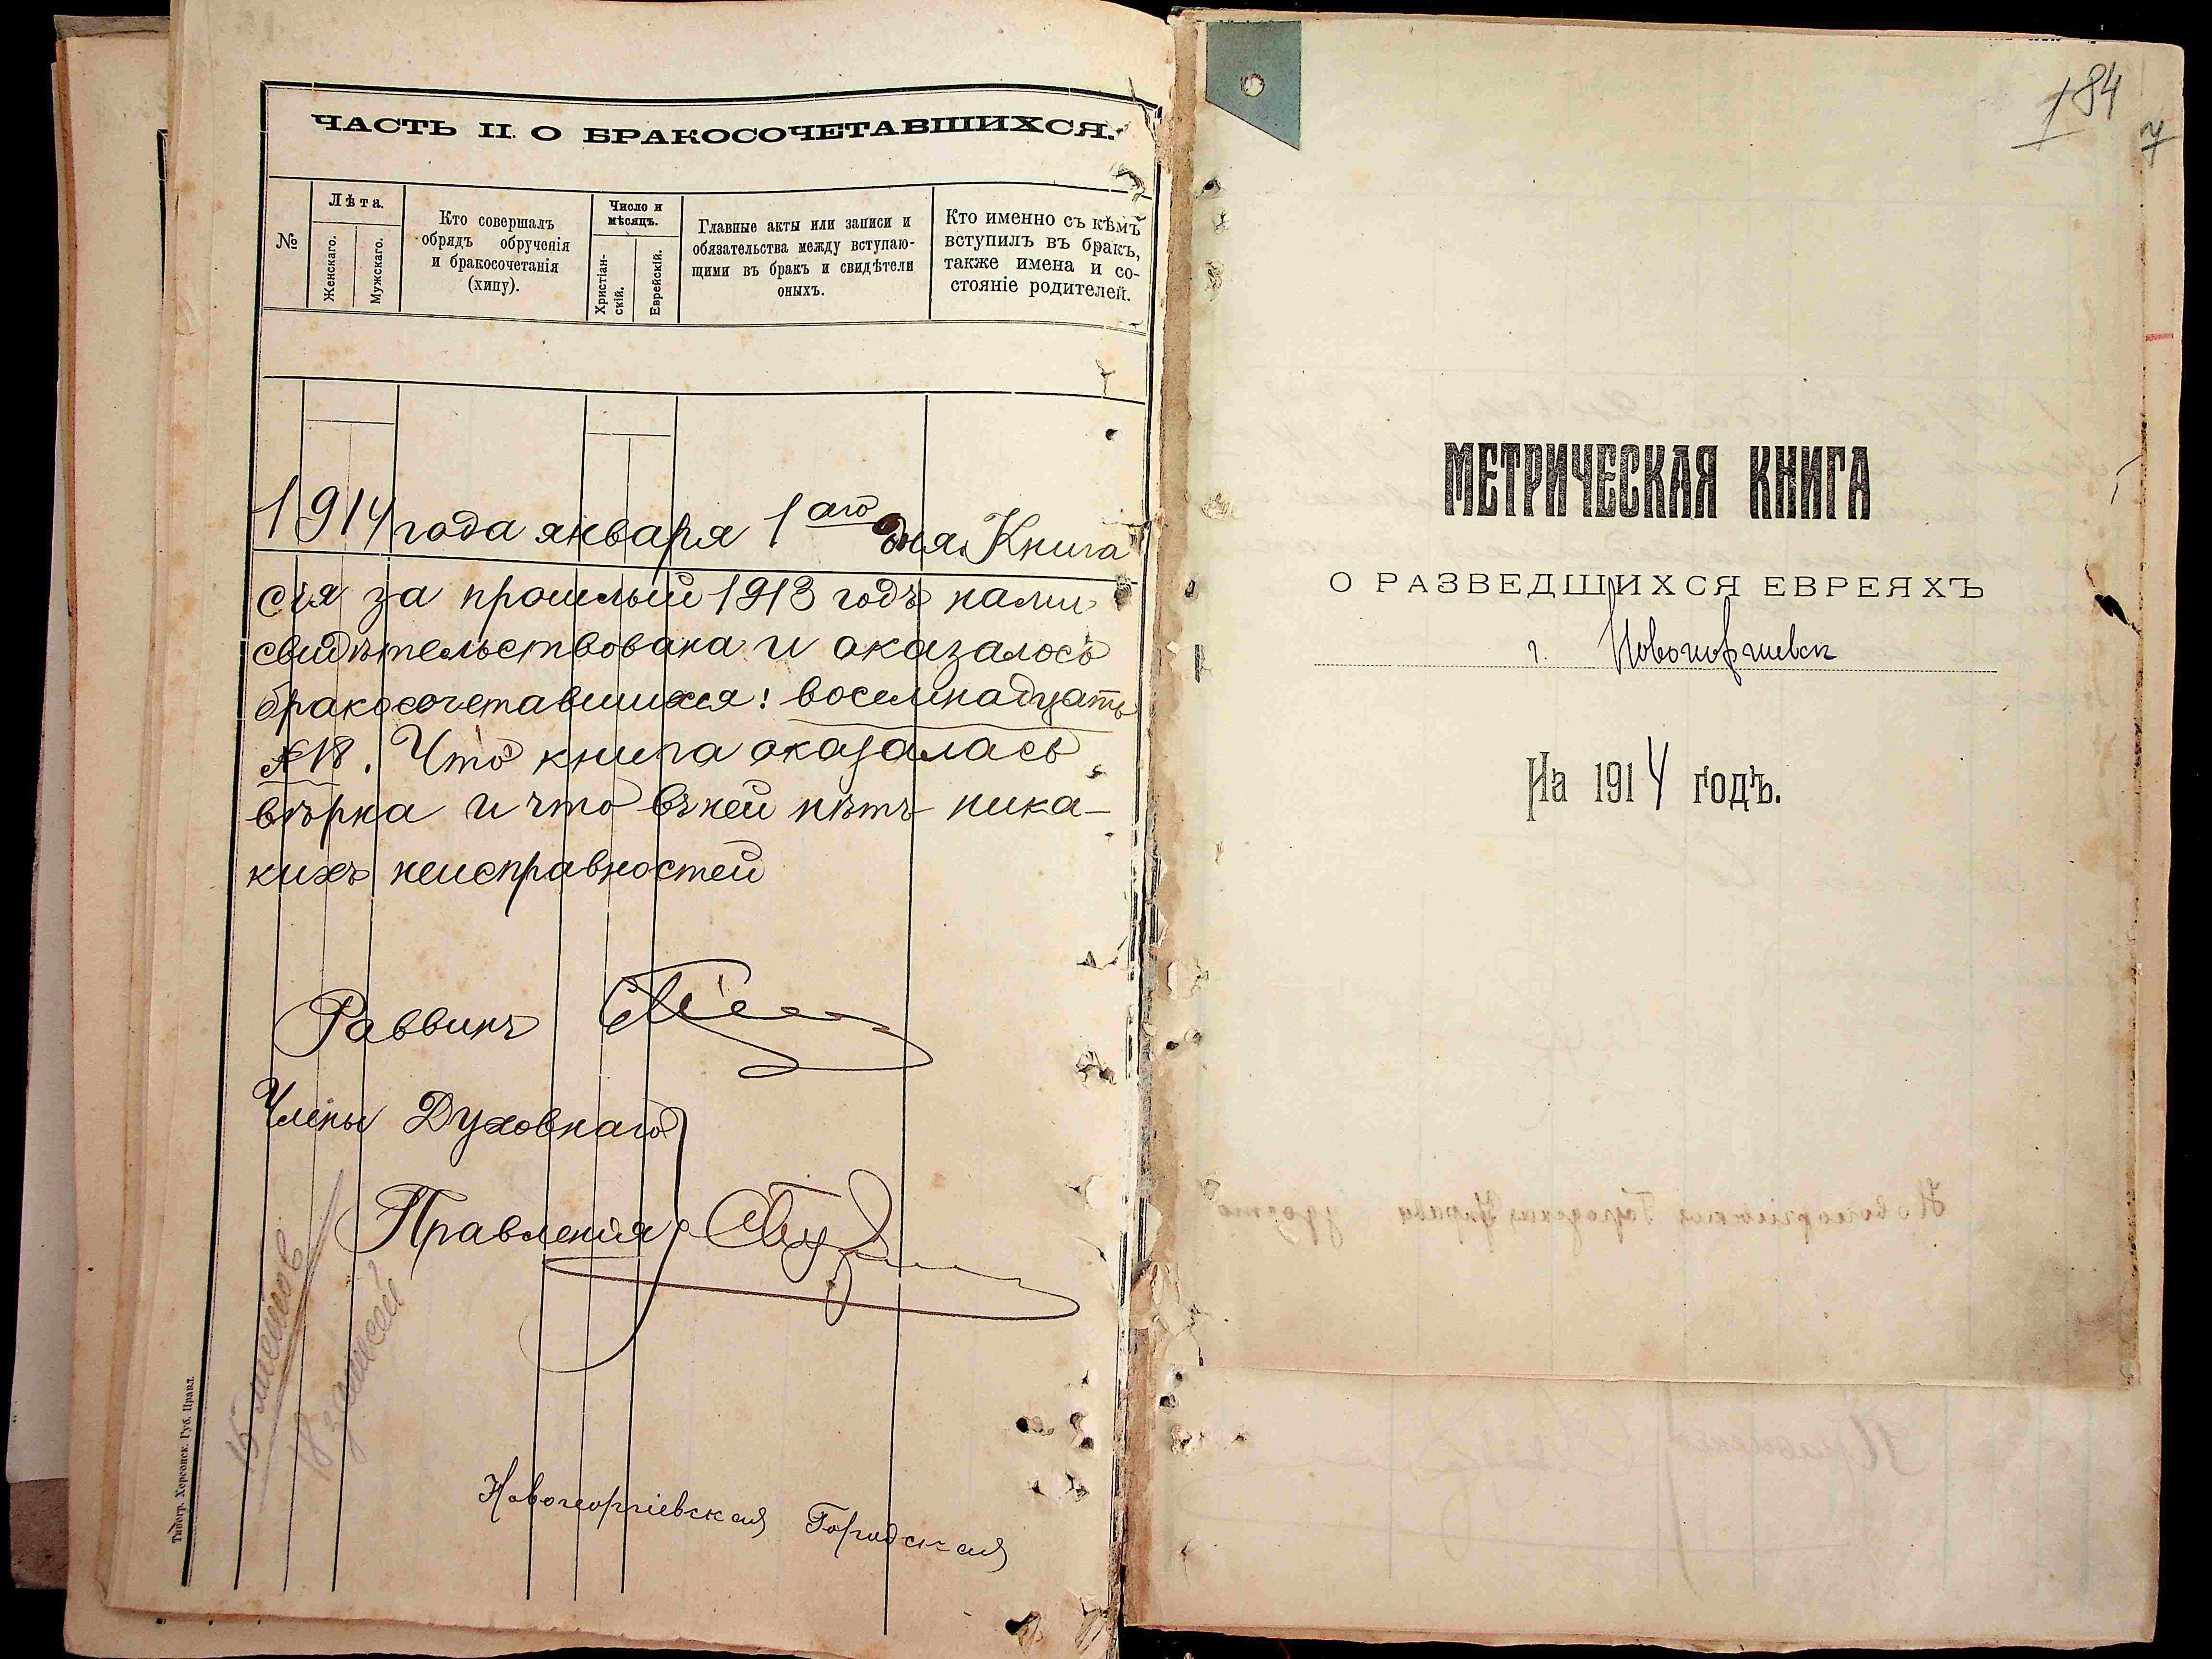 ЧАСТЬ II. О БРАКОСОЧЕТАВШИХСЯ.
№
Лѣта.
Женскаго.
Мужскаго.
Кто совершалъ
обрядъ обрученія
и бракосочетанія
(хипу).
Число и
мѣсяцъ.
Христіан-
скій.
Еврейскій.
Главные акты или записи и
обязательства между вступаю-
щими въ бракъ и свидѣтели
оныхъ.
Кто именно съ кѣмъ
вступилъ въ бракъ,
также имена и со-
стояніе родителей.
1914 года января 1аго дня Книга
сія за прошлый 1913 годъ нами
свидѣтельствована и оказалось
бракосочетавшихся: восемнадцать
№18. Что книга оказалась
вѣрна и что въ ней нѣтъ ника-
кихъ неисправностей
Раввинъ
Члены Духовнаго
Правленія
15 листов
18 записей
Новогеоргіевская Городская
Типогр. Херсонск. Губ. Правл.
184
7
МЕТРИЧЕСКАЯ КНИГА
О РАЗВЕДШИХСЯ ЕВРЕЯХЪ
г. Новогоргиевск
На 1914 годъ.